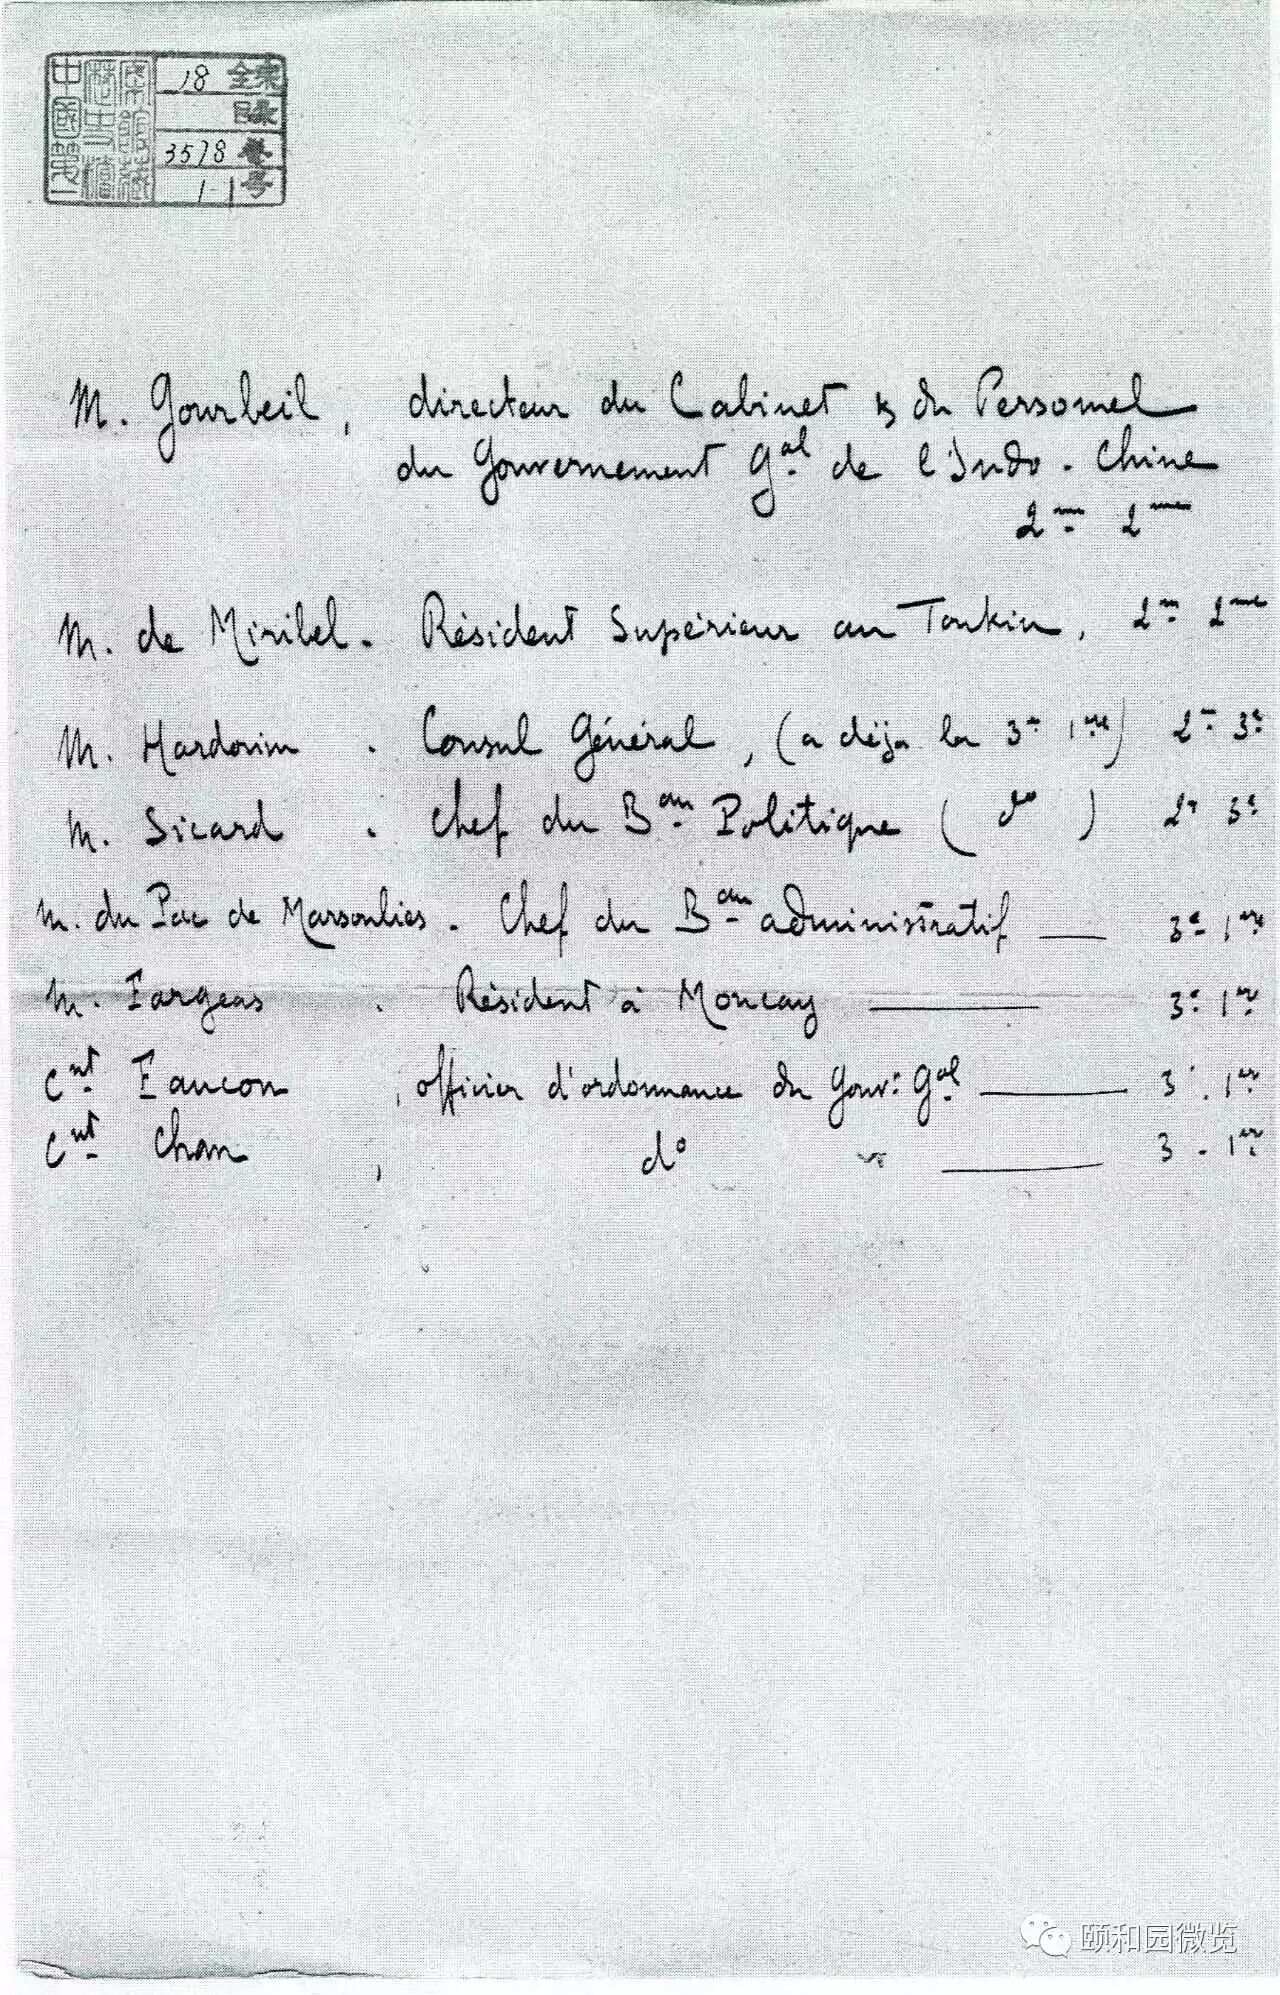 中國第一
歷史檔
案館藏
18 全宗
目录
3578 卷
1-1 号
M. Gourbeil, directeur du Cabinet & du Personnel
du Gouvernement Gal de l'Indo-Chine
2me 2me
M. de Miribel. Résident Supérieur au Tonkin, 2me 2me
M. Hardouin. Consul Général, (a déjà la 3e 1re) 2e 3e
M. Sicard. Chef du Bau Politique (do) 2e 3e
M. du Pac de Marsoulies. Chef du Bau administratif — 3e 1re
M. Fargeas. Résident à Moncay — 3e 1re
Cnt Faucon, officier d'ordonnance du Gouv: Gal — 3e 1re
Cnt Chan, do — 3 - 1re
颐和园微览